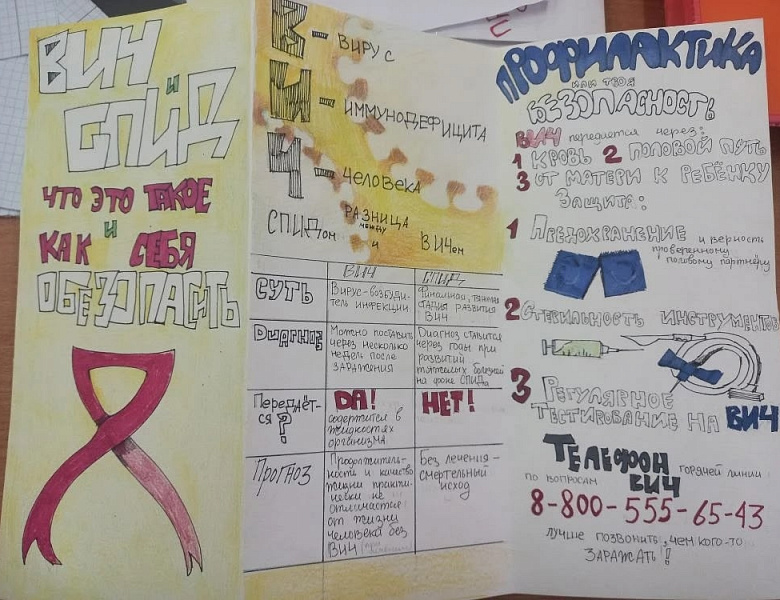 ВИЧ
и
СПИД
ЧТО ЭТО ТАКОЕ
И
КАК СЕБЯ
ОБЕЗОПАСИТЬ
В - ВИРУС
И - ИММУНОДЕФИЦИТА
Ч - ЧЕЛОВЕКА
РАЗНИЦА
между
СПИДом и ВИЧем
ВИЧ СПИД
СУТЬ
Вирус-возбуди-
тель инфекции.
Финальная,
стадия развития
ВИЧ
Диагноз
Можно поставить
через несколько
недель после
заражения
Диагноз ставится
через годы при
развитии
тяжёлых болезней
на фоне СПИДа
Передаёт-
ся?
ДА!
содержится в
жидкостях
организма
НЕТ!
Прогноз
Продолжитель-
ность и качество
жизни практи-
чески не
отличается
от жизни
человека без
ВИЧ
Без лечения -
смертельный
исход
ПРОФИЛАКТИКА
или твоя
БЕЗОПАСНОСТЬ
ВИЧ передается через:
1 КРОВЬ 2 ПОЛОВОЙ ПУТЬ
3 ОТ МАТЕРИ К РЕБЁНКУ
Защита:
1 Предохранение и верность
проверенному
половому партнёру
2 Стерильность инструментов
3 Регулярное
тестирование на ВИЧ
Телефон горячей линии
по вопросам ВИЧ
8-800-555-65-43
лучше позвонить, чем кого-то
ЗАРАЖАТЬ!